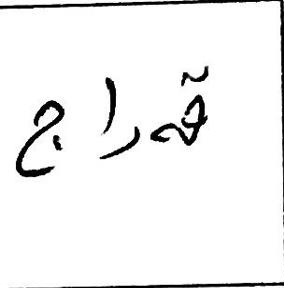 قمراج